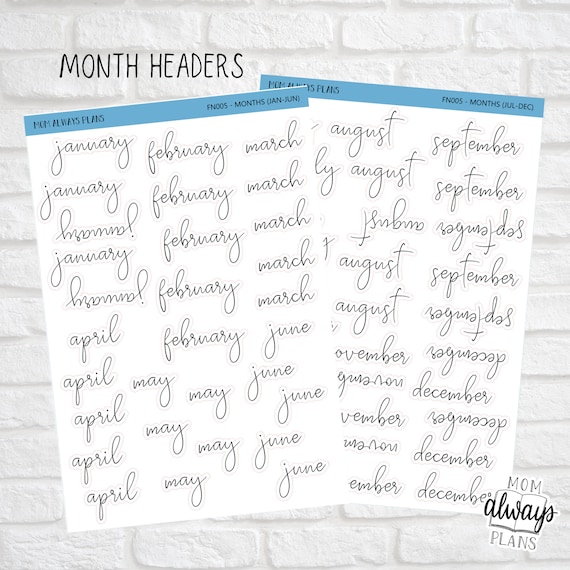 MONTH HEADERS
MOM ALWAYS PLANS FN005 - MONTHS (JAN-JUN)
january february march
january february march
january february march
january march
january february march
april february june
april may may june
april may june
april may june
april may june
MOM ALWAYS PLANS FN005 - MONTHS (JUL-DEC)
august september
ly august september
august september
august september
august september
ovember december
novemb december
vember december
novem december
ember december
MOM
always
PLANS